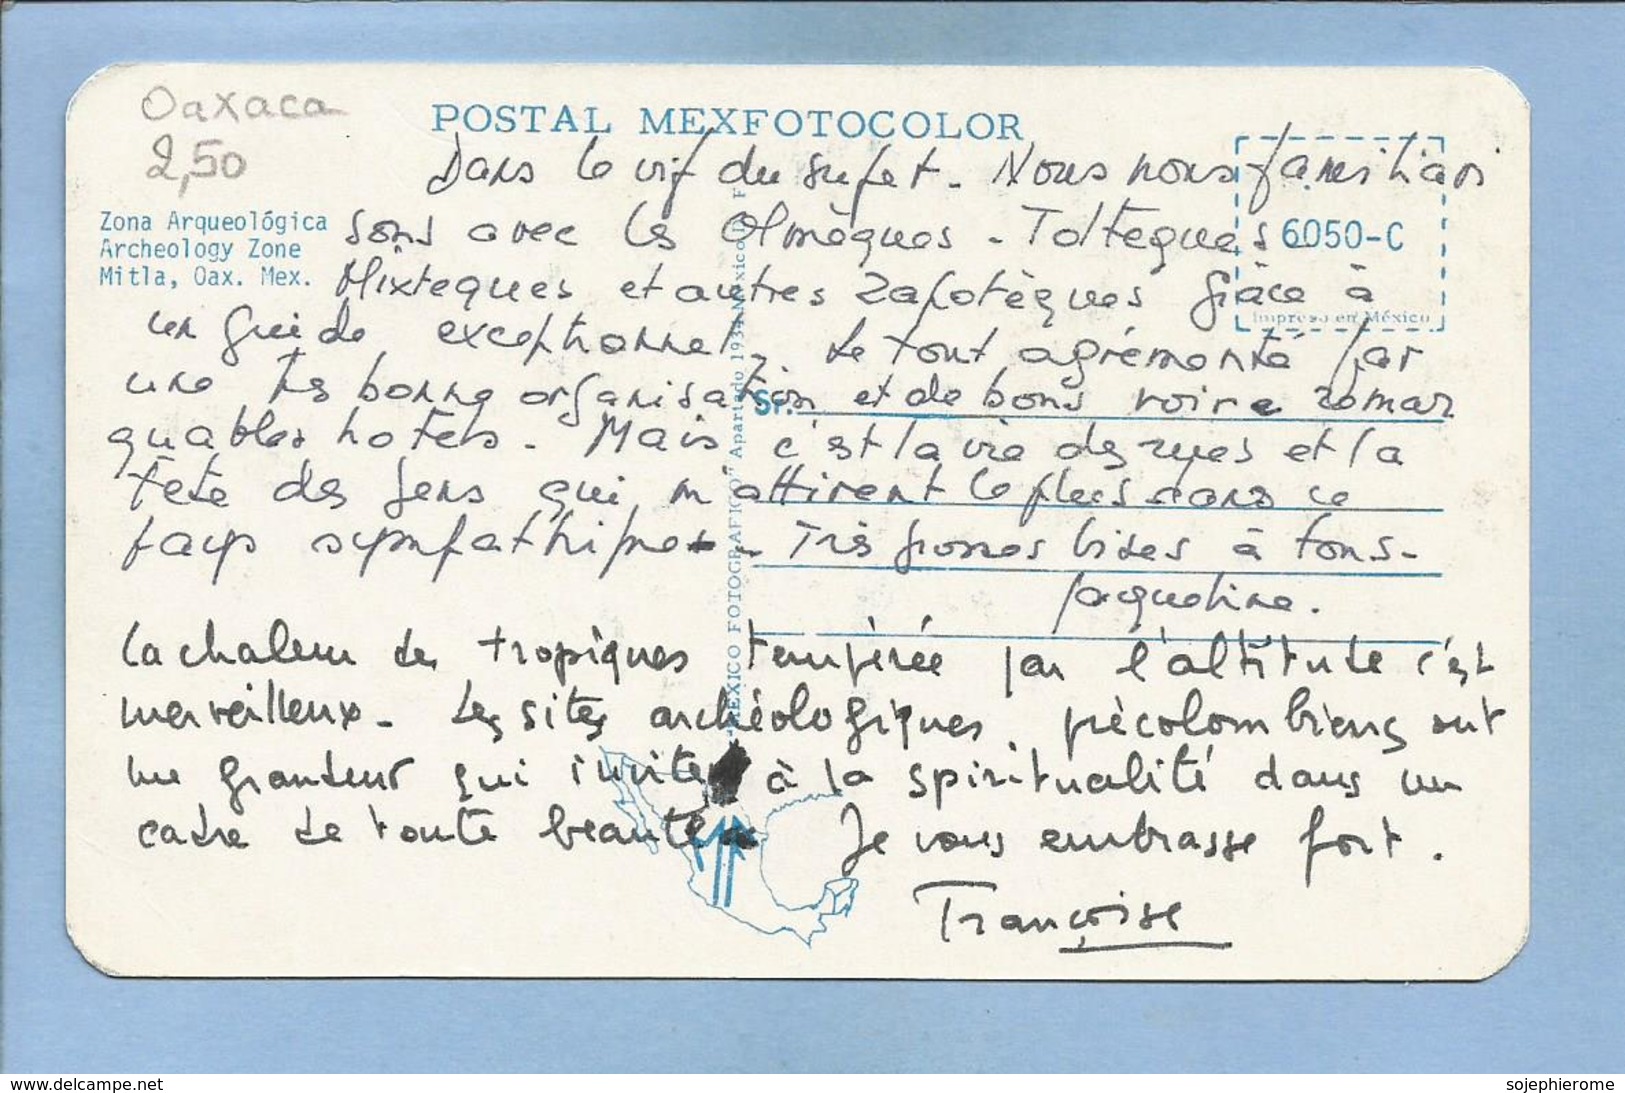 Oaxaca
2,50
POSTAL MEXFOTOCOLOR
Zona Arqueológica
Archeology Zone
Mitla, Oax. Mex.
6050-C
Impreso en México
Sr.
"MEXICO FOTOGRAFICO" Apartado 1934 México
Dans le vif du sujet. Nous nous familiari
sons avec les Olmèques - Toltèques
Mixtèques et autres Zapotèques grâce à
un guide exceptionnel. Le tout agrémenté par
une très bonne organisation et de bons voire remar
quables hotels. Mais c'est la vie des rues et la
tete des gens qui m'attirent le plus dans ce
pays sympathique. Très grosses bises à tous.
Jacqueline.
La chaleur des tropiques tempérée par l'altitude c'est
merveilleux. Les sites archéologiques précolombiens ont
une grandeur qui invite à la spiritualité dans un
cadre de toute beauté. Je vous embrasse fort.
Françoise
www.delcampe.net
sojephierome